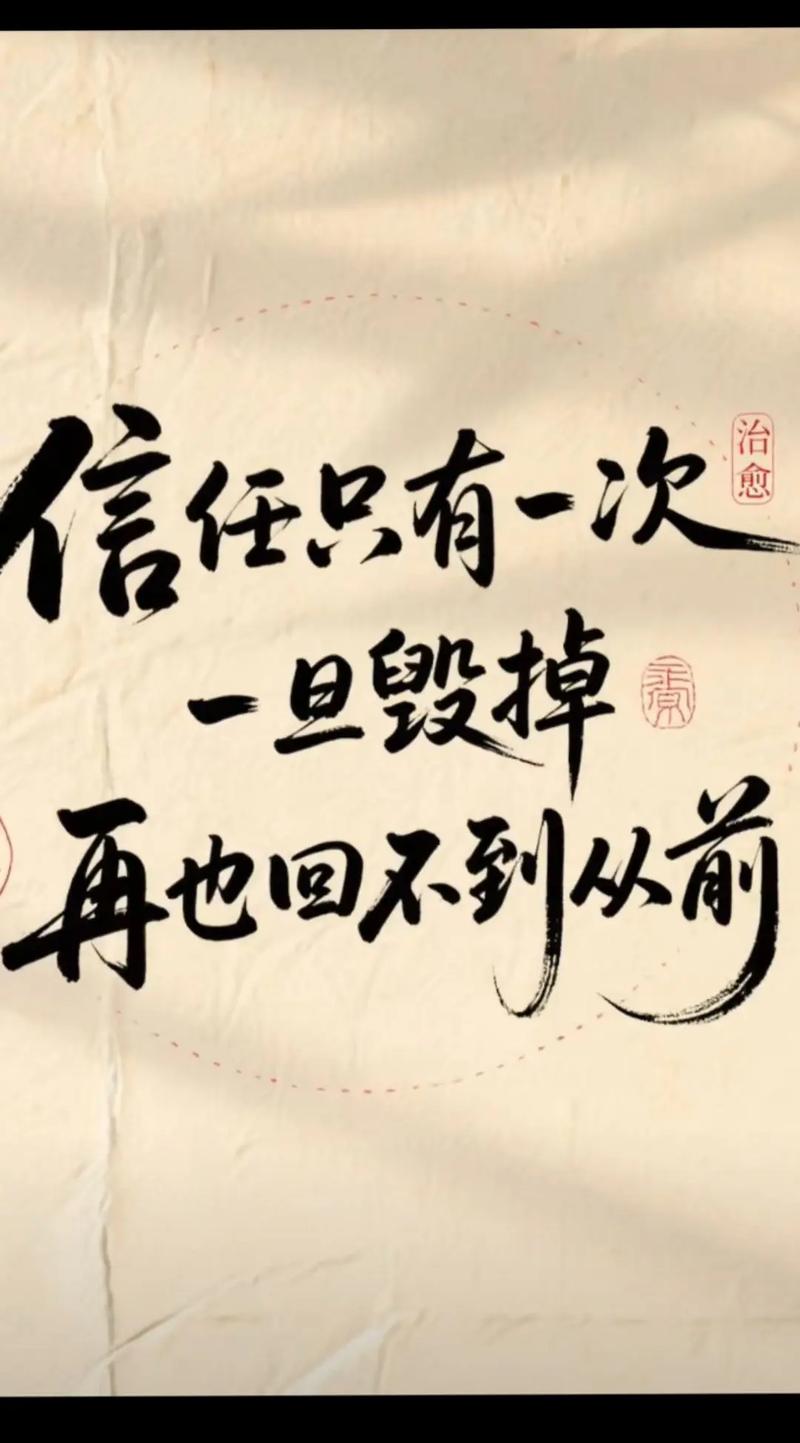 信任只有一次
治愈
一旦毁掉
再也回不到从前